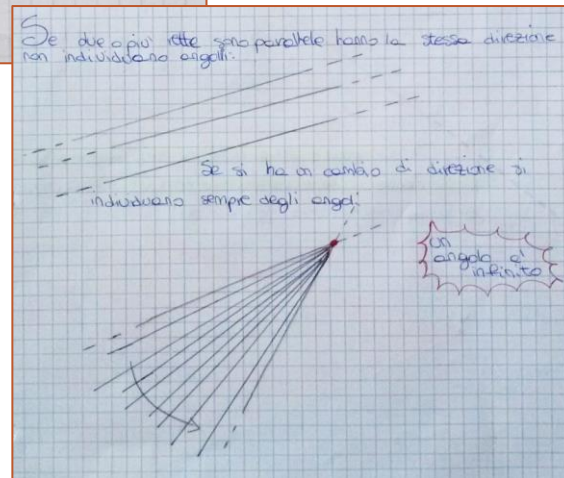 Se due o piu' rette sono parallele hanno la stessa direzione
non individuano angoli.
Se si ha un cambio di direzione si
individuano sempre degli angoli
un
angolo e'
infinito